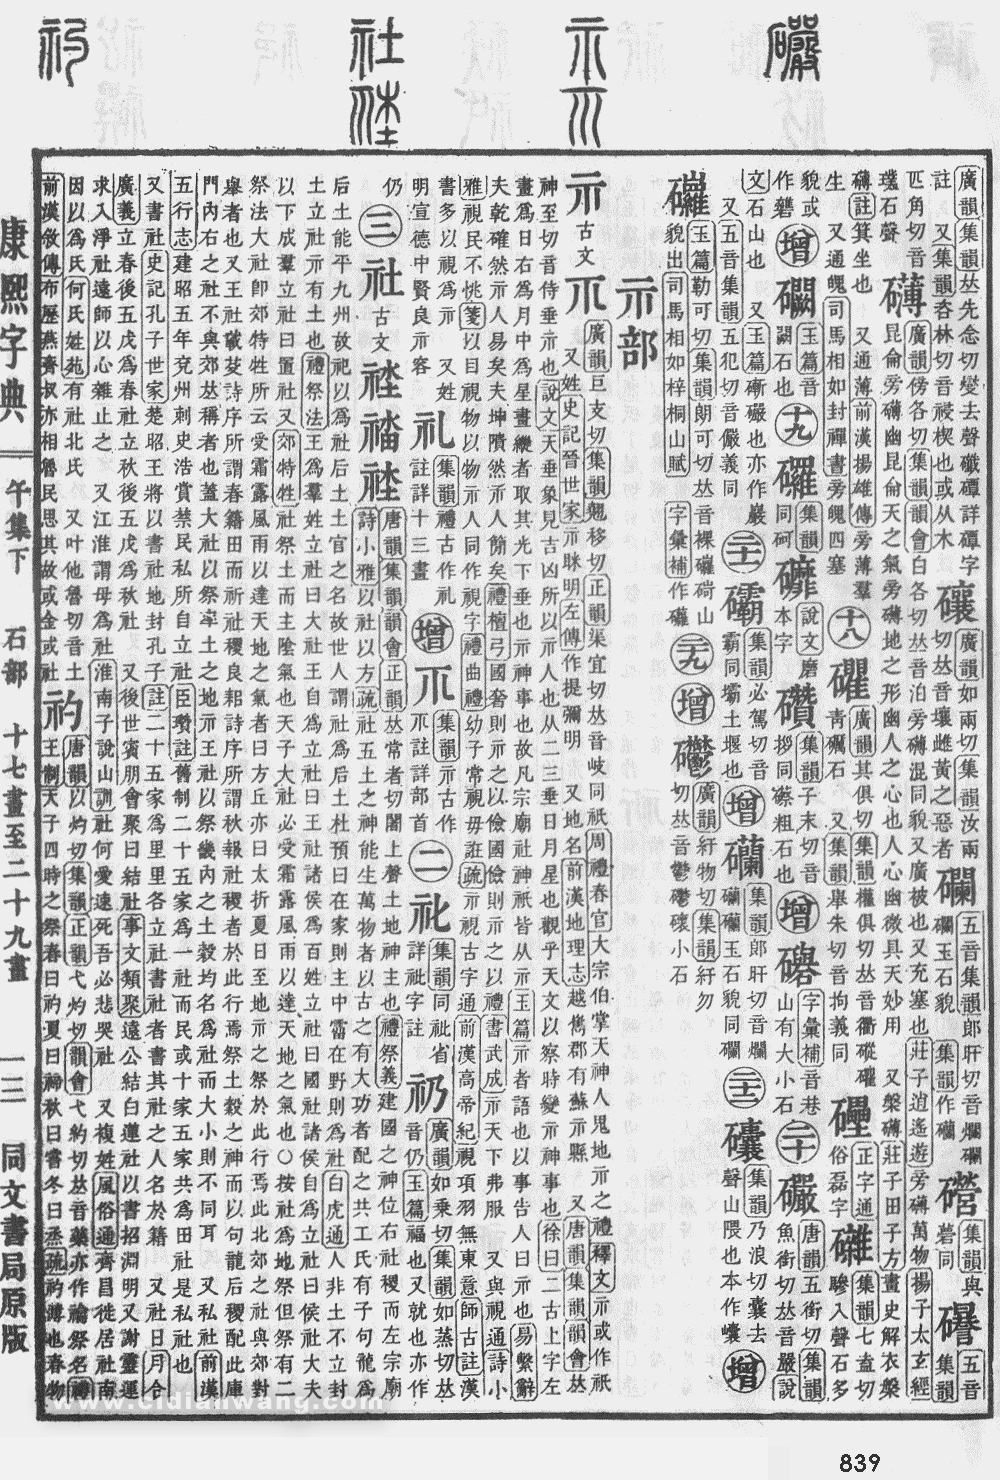 廣韻集韻𠀤先念切燮去聲磹詳磹字
註又集韻林切音祲楔也或从木
廣韻如兩切集韻汝兩
切𠀤音壤雌黃之惡者
五音集韻郎旰切音爛
玉石貌
集韻與
礐同
五音
集韻
匹角切音
璞石聲
礴
廣韻傍各切集韻韻會白各切𠀤音泊旁礴混同貌又廣被也又充塞也莊子逍遙遊旁礴萬物揚子太玄經
昆侖旁礴幽昆侖天之氣旁礴地之形幽人之心也人心幽微具天妙用 又槃礴莊子田子方畫史解衣槃
礴註箕坐也 又通薄前漢揚雄傳旁薄羣
生 又通魄司馬相如封禪書旁魄四塞
十八
礭
廣韻其俱切集韻權俱切𠀤音衢
青礪石 又集韻舉朱切音拘義同
正字通
俗磊字
集韻七盍切
聲石多
貌或
作礸
增
玉篇音
闢石也
十九
集韻
同砢
說文䃺
本字
集韻子末切音
拶同礤粗石也
增
字彙補音巷
山有大小石
二十
巖
唐韻五銜切集韻
魚銜切𠀤音嚴說
文石山也 又玉篇嶄礹也亦作巖
又五音集韻五犯切音儼義同
二十一
集韻必駕切音
霸同壩土堰也
增
集韻郎旰切音爛
玉石貌同
二十二
集韻乃浪切囊去
聲山隈也本作
增
玉篇勒可切集韻朗可切𠀤音裸山
貌出司馬相如梓桐山賦 字彙補作
二十九
增
廣韻紆物切集韻紆勿
切𠀤音鬱鬱小石
示部
示
古文
廣韻巨支切集韻翹移切正韻渠宜切𠀤音岐同祇周禮春官大宗伯掌天神人鬼地示之禮釋文示或作祇
又姓史記晉世家示眯明左傳作提彌明 又地名前漢地理志越雟郡有蘇示縣 又唐韻集韻韻會𠀤
神至切音侍垂示也說文天垂象見吉凶所以示人也从二三垂日月星也觀乎天文以察時變示神事也徐曰二古上字左
畫爲日右爲月中爲星畫縱者取其光下垂也示神事也故凡宗廟社神祇皆从示玉篇示者語也以事告人曰示也易繫辭
夫乾確然示人易矣夫坤隤然示人簡矣禮檀弓國奢則示之以儉國儉則示之以禮書武成示天下弗服 又與視通詩小
雅視民不恌箋以目視物以物示人同作視字禮曲禮幼子常視毋誑疏示視古字通前漢高帝紀視項羽無東意師古註漢
書多以視爲示 又姓
明宣德中賢良示容
礼
集韻禮古作礼
註詳十三畫
增
集韻示古作
註詳部首
二
礼
集韻同祉省
詳祉字註
礽
廣韻如乘切集韻如蒸切𠀤
音仍玉篇福也又就也亦作
仍
三
社
古文
唐韻集韻韻會正韻𠀤常者切闍上聲土地神主也禮祭義建國之神位右社稷而左宗廟
詩小雅以社以方疏社五土之神能生萬物者以古之有大功者配之共工氏有子句龍爲
后土能平九州故祀以爲社后土土官之名故世人謂社爲后土杜預曰在家則主中霤在野則爲社白虎通人非土不立封
土立社示有土也禮祭法王爲羣姓立社曰大社王自爲立社曰王社諸侯爲百姓立社曰國社諸侯自爲立社曰侯社大夫
以下成羣立社曰置社又郊特牲社祭土而主陰氣也天子大社必受霜露風雨以達天地之氣也○按社爲地祭但祭有二
祭法大社卽郊特牲所云受霜露風雨以達天地之氣者曰方丘亦曰太折夏日至地示之祭於此行焉此北郊之社與郊對
舉者也又王社載芟詩序所謂春籍田而祈社稷良耜詩序所謂秋報社稷者於此行焉祭土穀之神而以句龍后稷配此庫
門內右之社不與郊𠀤稱者也蓋大社以祭率土之地示王社以祭畿內之土穀均名爲社而大小則不同耳 又私社前漢
五行志建昭五年兗州刺史浩賞禁民私所自立社臣瓚註舊制二十五家爲一社而民或十家五家共爲田社是私社也
又書社史記孔子世家楚昭王將以書社地封孔子註二十五家爲里里各立社書社者書其社之人名於籍 又社日月令
廣義立春後五戊爲春社立秋後五戊爲秋社 又後世賓朋會聚曰結社事文類聚遠公結白蓮社以書招淵明又謝靈運
求入淨社遠師以心雜止之 又江淮謂母爲社淮南子說山訓社何愛速死吾必悲哭社 又複姓風俗通齊昌徙居社南
因以爲氏何氏姓苑有社北氏 又叶他魯切音土
前漢敘傳布歷燕齊叔亦相魯民思其政或金或社
礿
唐韻以灼切集韻正韻弋灼切韻會弋約切𠀤音藥亦作禴祭名禮
王制天子四時之祭春曰礿夏曰禘秋曰嘗冬曰烝疏礿薄也春物
康熙字典
午集下 石部 十七畫至二十九畫
一三
同文書局原版
www.cidianwang.com
839